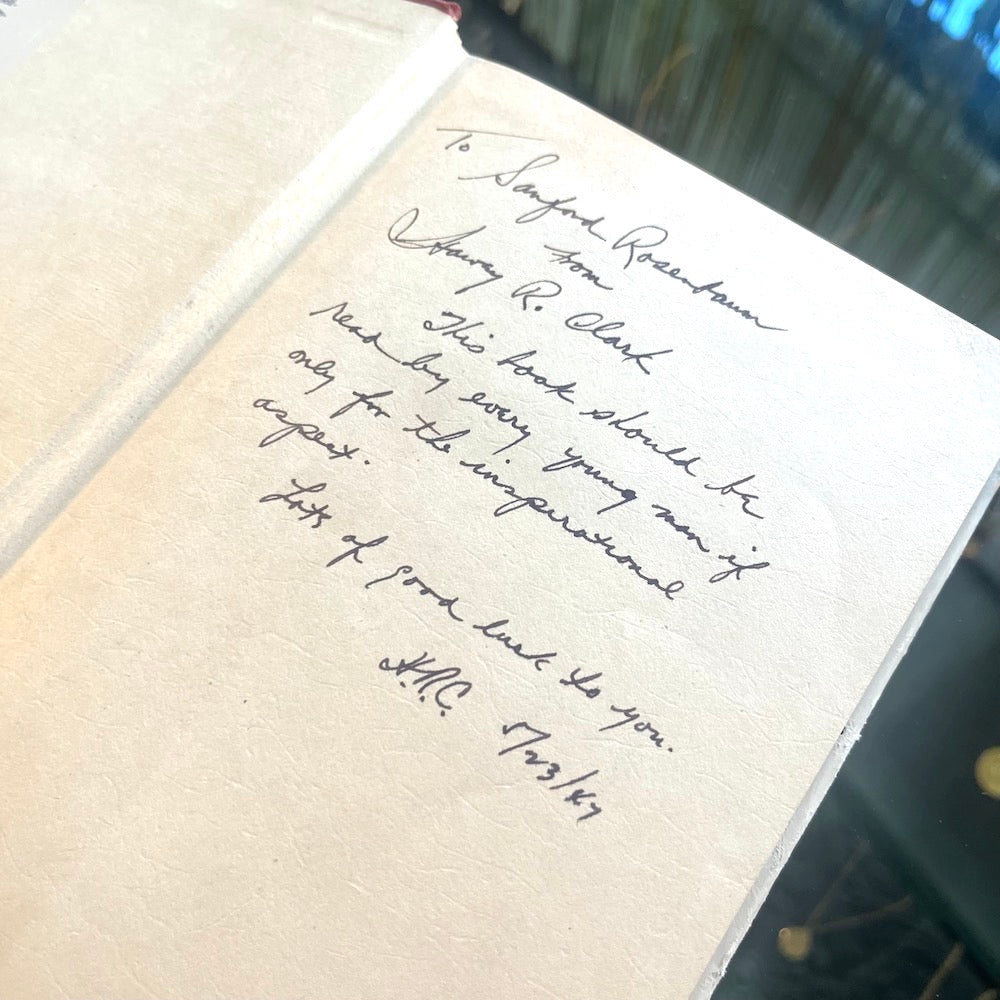 To Sanford Rosenbaum
from
Harry R. Clark
This book should be
read by every young man if
only for the inspirational
aspect.
Lots of good luck to you.
H.R.C. 5/23/47